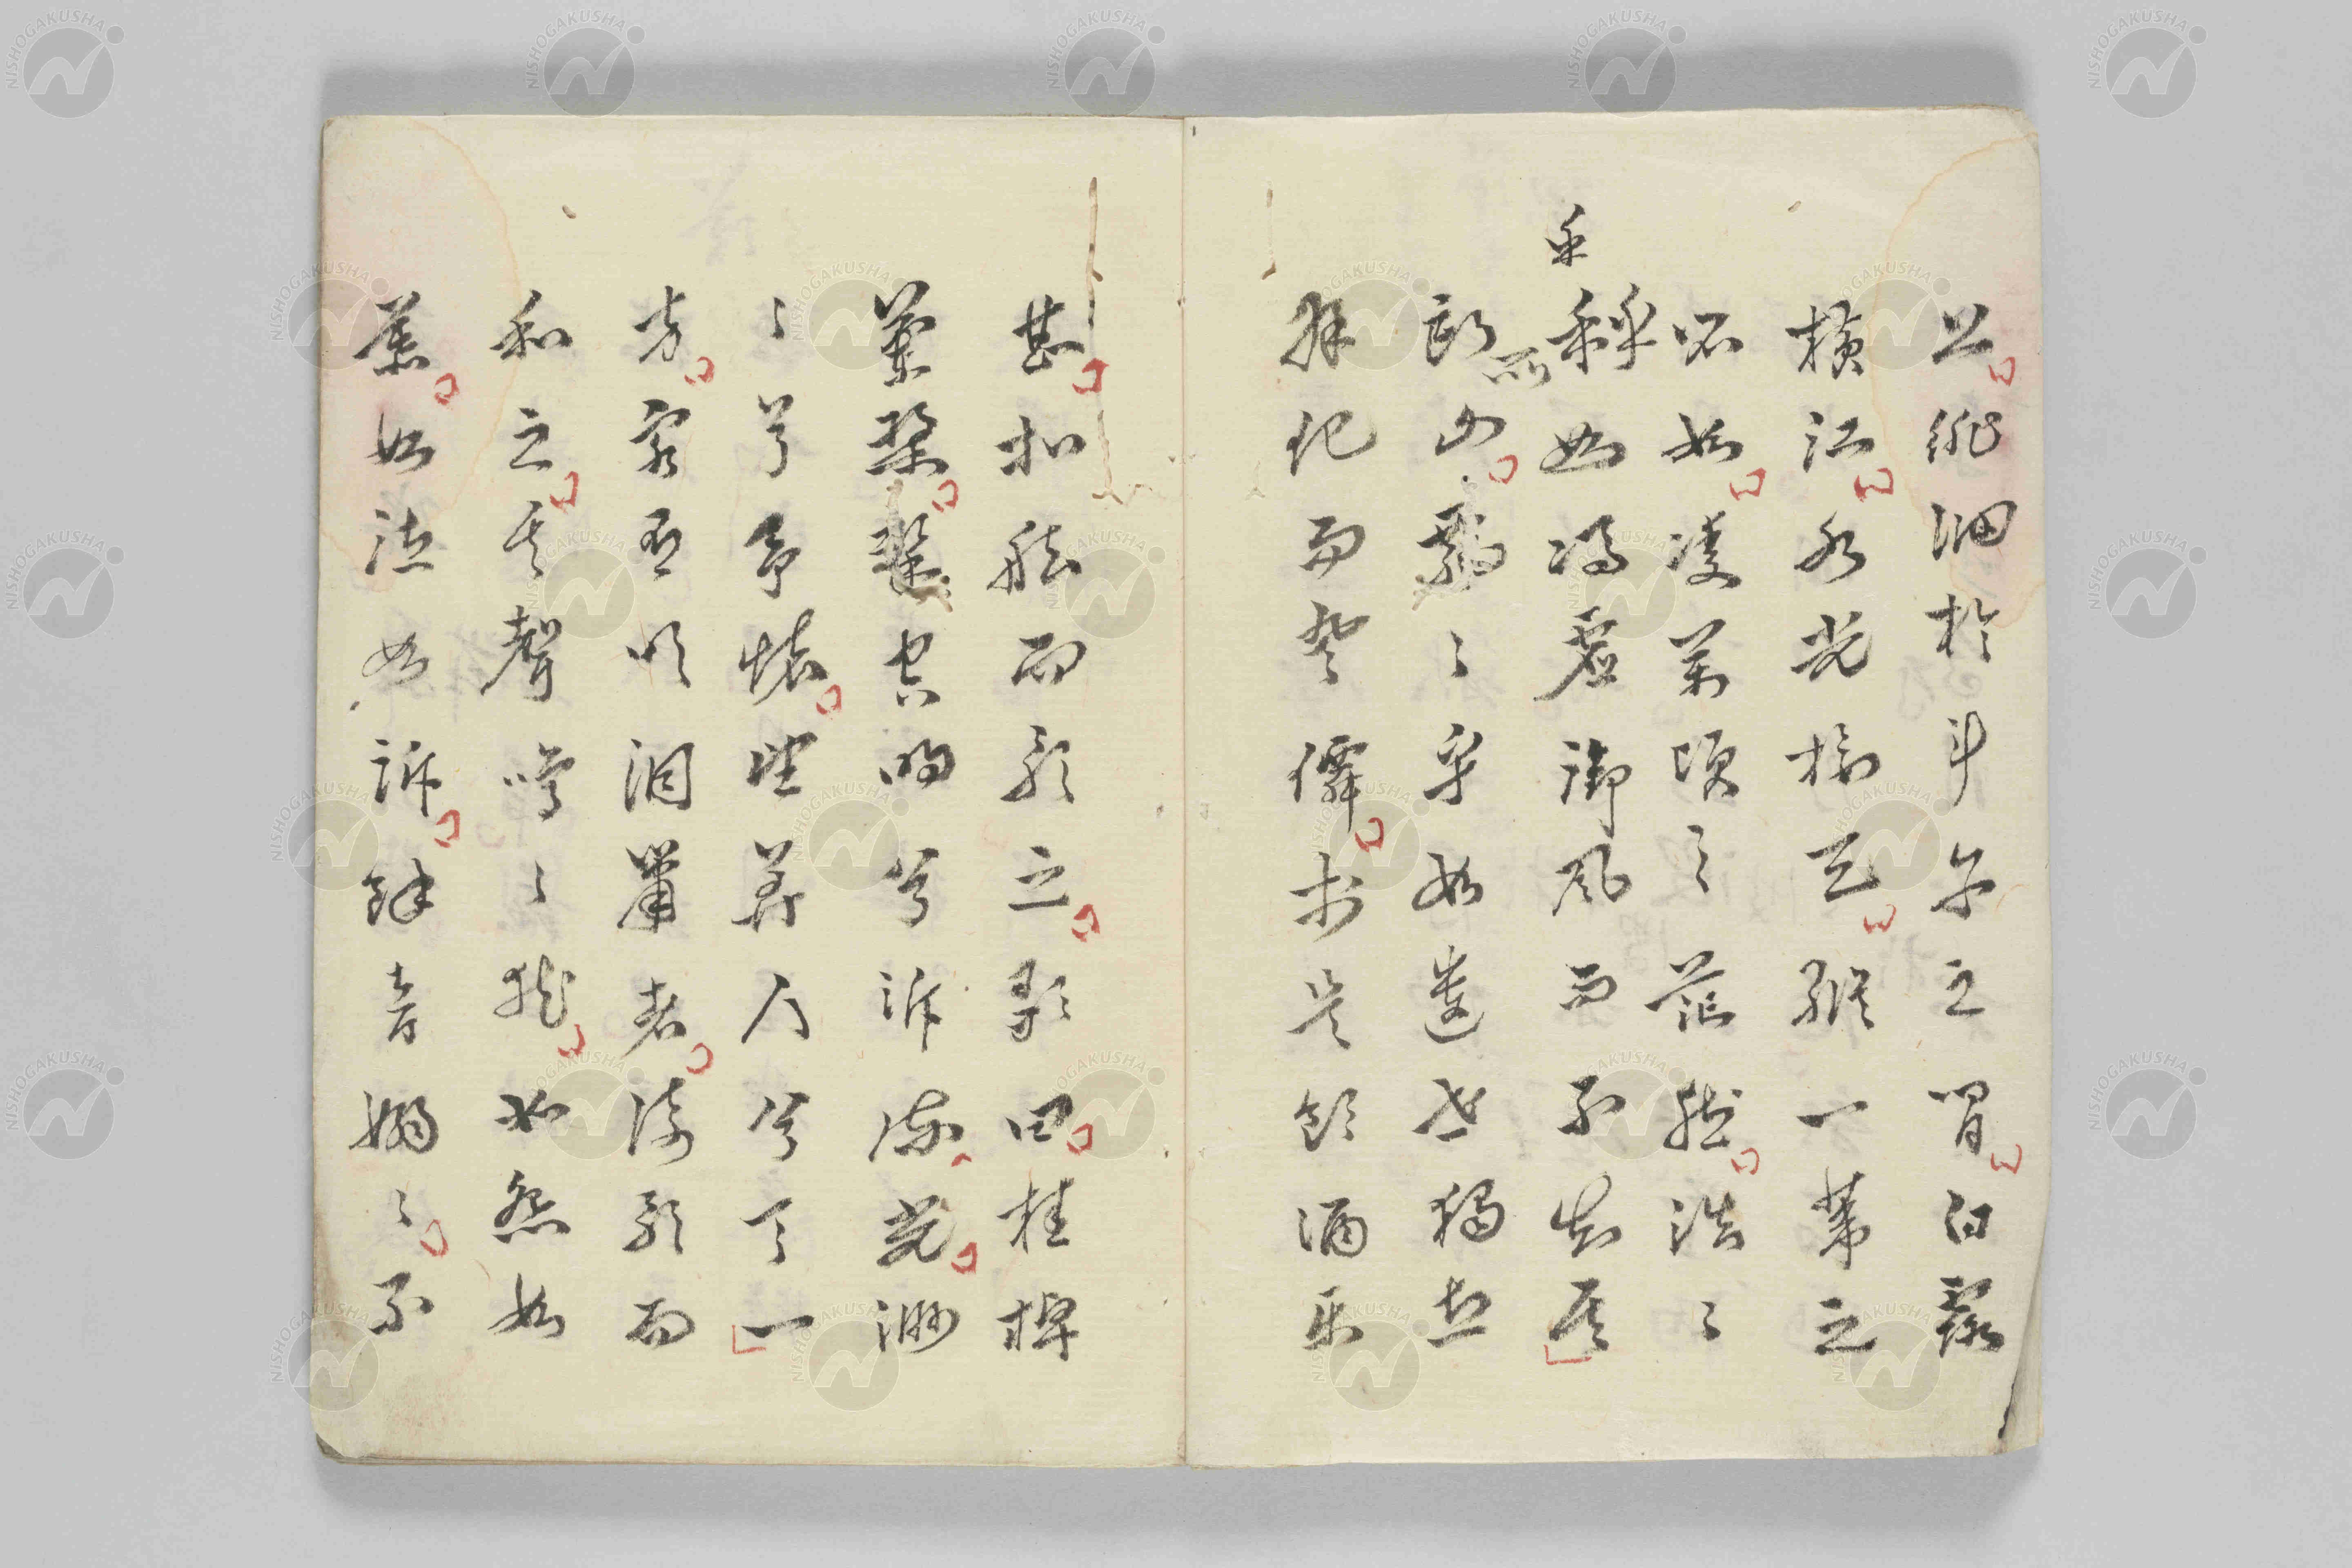 上徘徊於斗牛之間白露
横江水光接天縱一葦之
所如凌萬頃之茫然浩々
乎
如馮虛御風而不知其
所
止飄々乎如遺世獨立
羽化而登僊於是飲酒樂
甚扣舷而歌之歌曰桂棹
蘭槳擊空明兮訴流光渺
々兮予懷望美人兮天一
方客有吹洞簫者倚歌而
和之其聲嗚々然如怨如
慕如泣如訴餘音嫋々不
NISHOGAKUSHA